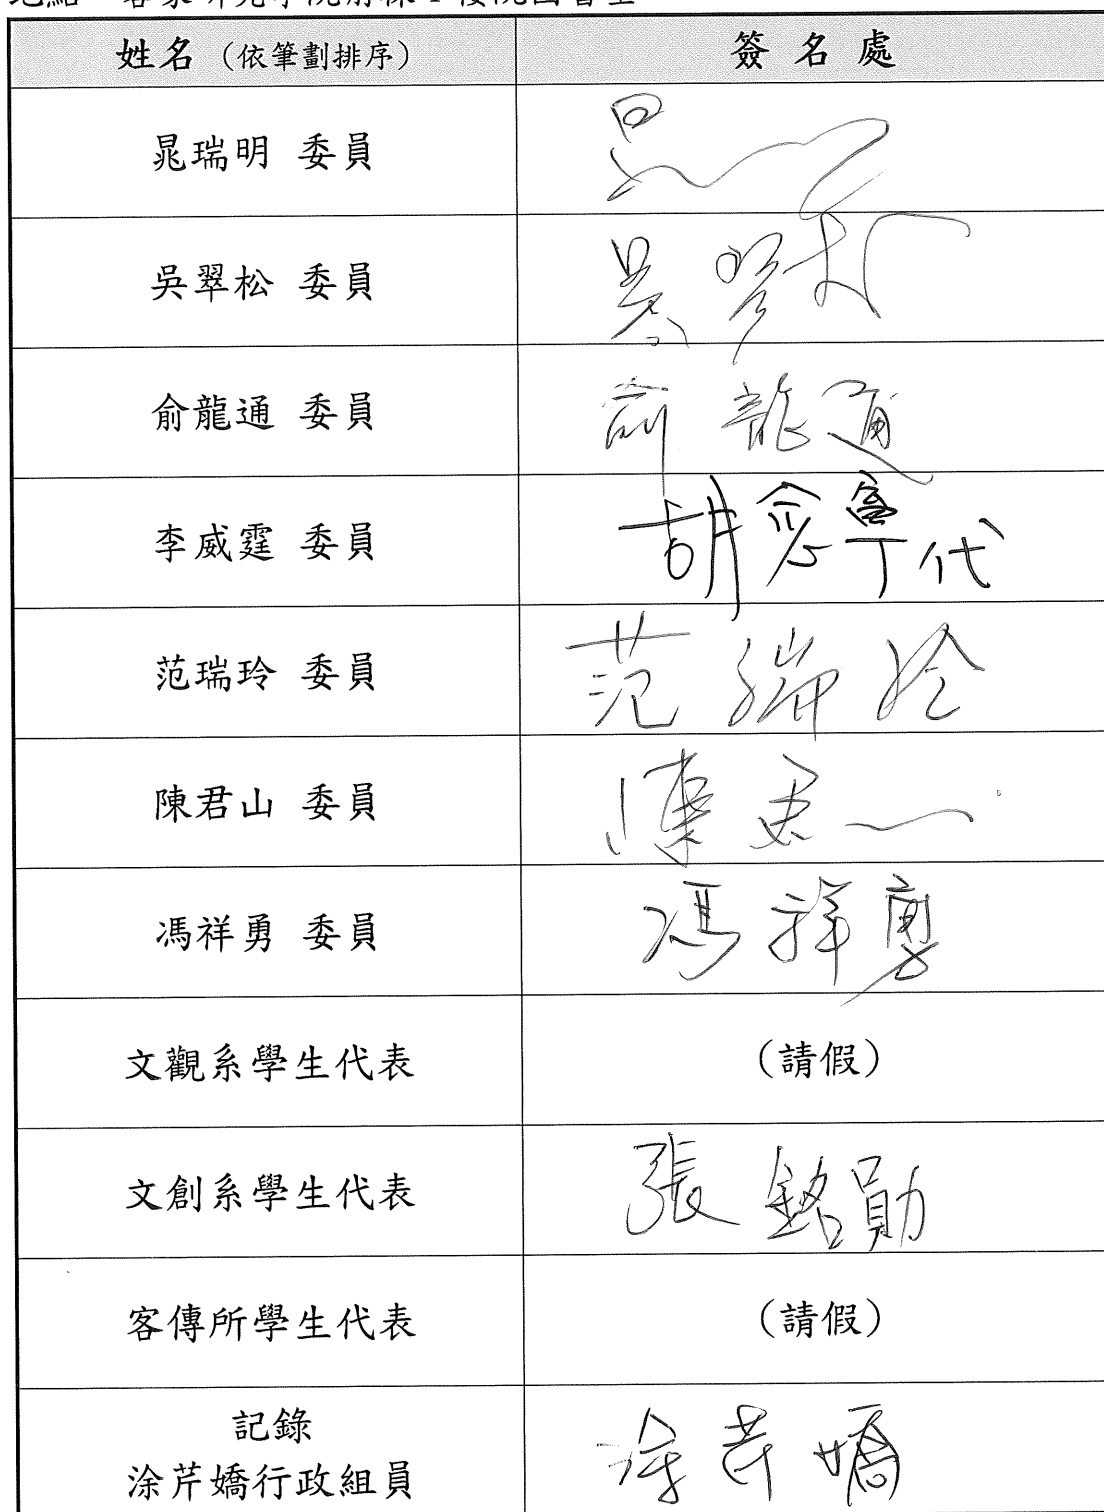 姓名（依筆劃排序） 簽名處
晁瑞明 委員
吳翠松 委員 吳翠松
俞龍通 委員 俞龍通
李威霆 委員 胡念寧代
范瑞玲 委員 范瑞玲
陳君山 委員 陳君山
馮祥勇 委員 馮祥勇
文觀系學生代表 （請假）
文創系學生代表 張銘勛
客傳所學生代表 （請假）
記錄
涂芹嬌行政組員 涂芹嬌